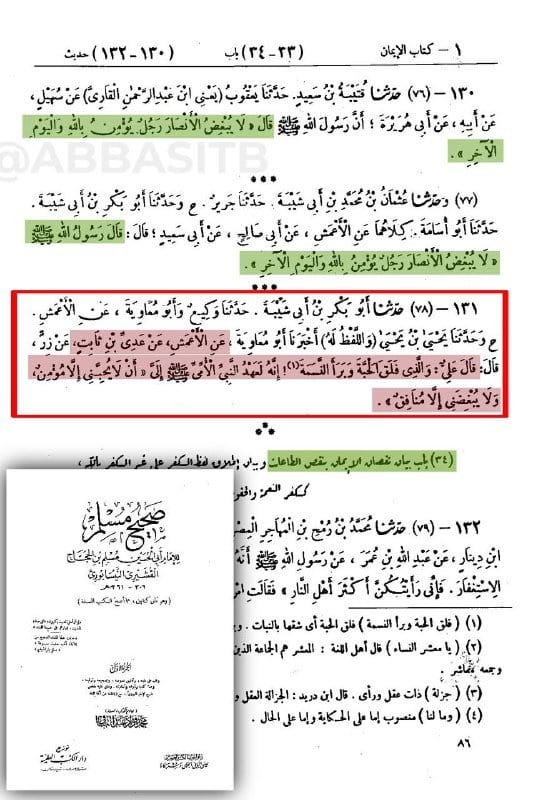 ١ – كتاب الإيمان (٢٣-٣٤) باب (١٣٠-١٣٢) حديث
١٣٠ – (٧٦) حَدَّثَنَا قُتَيْبَةُ بْنُ سَعِيدٍ. حَدَّثَنَا يَعْقُوبُ (يَعْنِي ابْنَ عَبْدِالرَّحْمٰنِ الْقَارِيَّ) عَنْ سُهَيْلٍ،
عَنْ أَبِيهِ، عَنْ أَبِي هُرَيْرَةَ؛ أَنَّ رَسُولَ اللهِ ﷺ قَالَ «لَا يُبْغِضُ الْأَنْصَارَ رَجُلٌ يُؤْمِنُ بِاللهِ وَالْيَوْمِ
الْآخِرِ».
@ABBASITB
(٧٧) وَحَدَّثَنَا عُثْمَانُ بْنُ مُحَمَّدِ بْنِ أَبِي شَيْبَةَ. حَدَّثَنَا جَرِيرٌ. ح وَحَدَّثَنَا أَبُو بَكْرِ بْنُ أَبِي شَيْبَةَ.
حَدَّثَنَا أَبُو أُسَامَةَ. كِلَاهُمَا عَنِ الْأَعْمَشِ، عَنْ أَبِي صَالِحٍ، عَنْ أَبِي سَعِيدٍ؛ قَالَ: قَالَ رَسُولُ اللهِ ﷺ
«لَا يُبْغِضُ الْأَنْصَارَ رَجُلٌ يُؤْمِنُ بِاللهِ وَالْيَوْمِ الْآخِرِ».
١٣١ – (٧٨) حَدَّثَنَا أَبُو بَكْرِ بْنُ أَبِي شَيْبَةَ. حَدَّثَنَا وَكِيعٌ وَأَبُو مُعَاوِيَةَ، عَنِ الْأَعْمَشِ.
ح وَحَدَّثَنَا يَحْيَى بْنُ يَحْيَى (وَاللَّفْظُ لَهُ) أَخْبَرَنَا أَبُو مُعَاوِيَةَ، عَنِ الْأَعْمَشِ، عَنْ عَدِيِّ بْنِ ثَابِتٍ، عَنْ زِرٍّ،
قَالَ: قَالَ عَلِيٌّ: وَالَّذِي فَلَقَ الْحَبَّةَ وَبَرَأَ النَّسَمَةَ(١)! إِنَّهُ لَعَهْدُ النَّبِيِّ الْأُمِّيِّ ﷺ إِلَيَّ «أَنْ لَا يُحِبَّنِي إِلَّا مُؤْمِنٌ،
وَلَا يُبْغِضَنِي إِلَّا مُنَافِقٌ».
(٣٤) باب بيان نقصان الإيمان بنقص الطاعات وبيان إطلاق لفظ الكفر على غير الكفر بالله،
ككفر النعمة والحقو
١٣٢ – (٧٩) حَدَّثَنَا مُحَمَّدُ بْنُ رُمْحِ بْنِ الْمُهَاجِرِ الْمِصْ
ابْنِ دِينَارٍ، عَنْ عَبْدِ اللهِ بْنِ عُمَرَ، عَنْ رَسُولِ اللهِ ﷺ أَنَّهُ
الِاسْتِغْفَارَ. فَإِنِّي رَأَيْتُكُنَّ أَكْثَرَ أَهْلِ النَّارِ» فَقَالَتِ امْرَ
(١) (فلق الحبة وبرأ النسمة) فلق الحبة أي شقها بالنبات. و
(٢) (يا معشر النساء) قال أهل اللغة: المعشر هم الجماعة الذين
وجمعه معاشر.
(٣) (جزلة) ذات عقل ورأى. قال ابن دريد: الجزالة العقل و
(٤) (وما لنا) منصوب إما على الحكاية وإما على الحال.
٨٦
صحيح مسلم
للإمام أبي الحسين مسلم بن الحجاج
القشيري النيسابوري
٢٠٦ - ٢٦١هـ
الجزء الأول
محمد فؤاد عبد الباقي
توزيع
دار الكتب العلمية